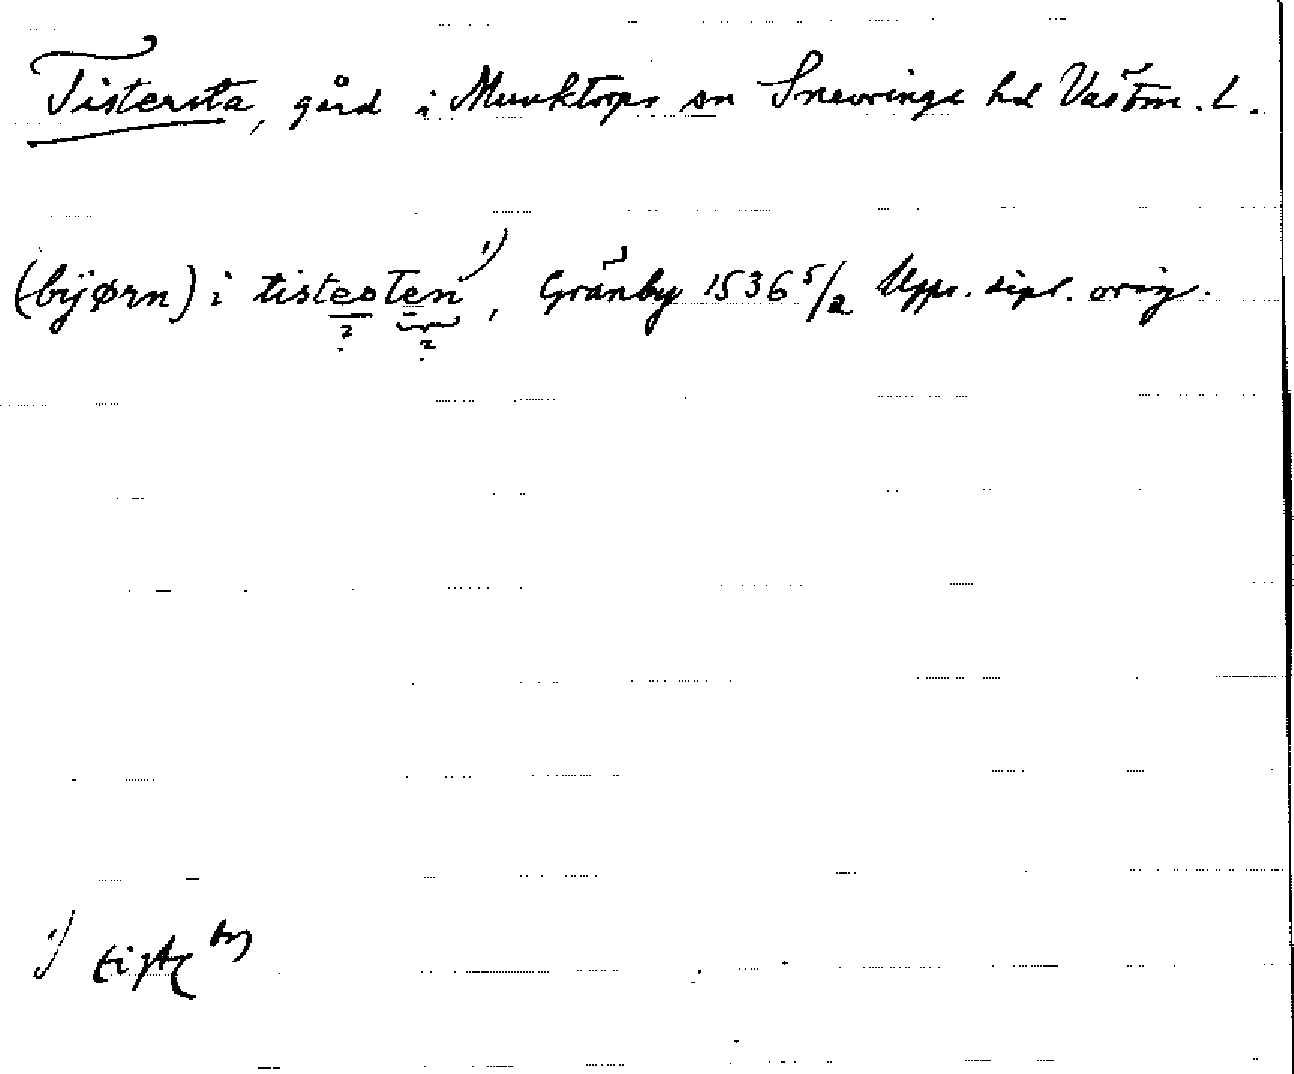 Tistersta, gård i Munktorps sn Snevringe hd Västm. L.
(bijørn) i tistesten ¹⁾, Gränby 1536 5/2 Upps. dipl. orig.
? ?
1)